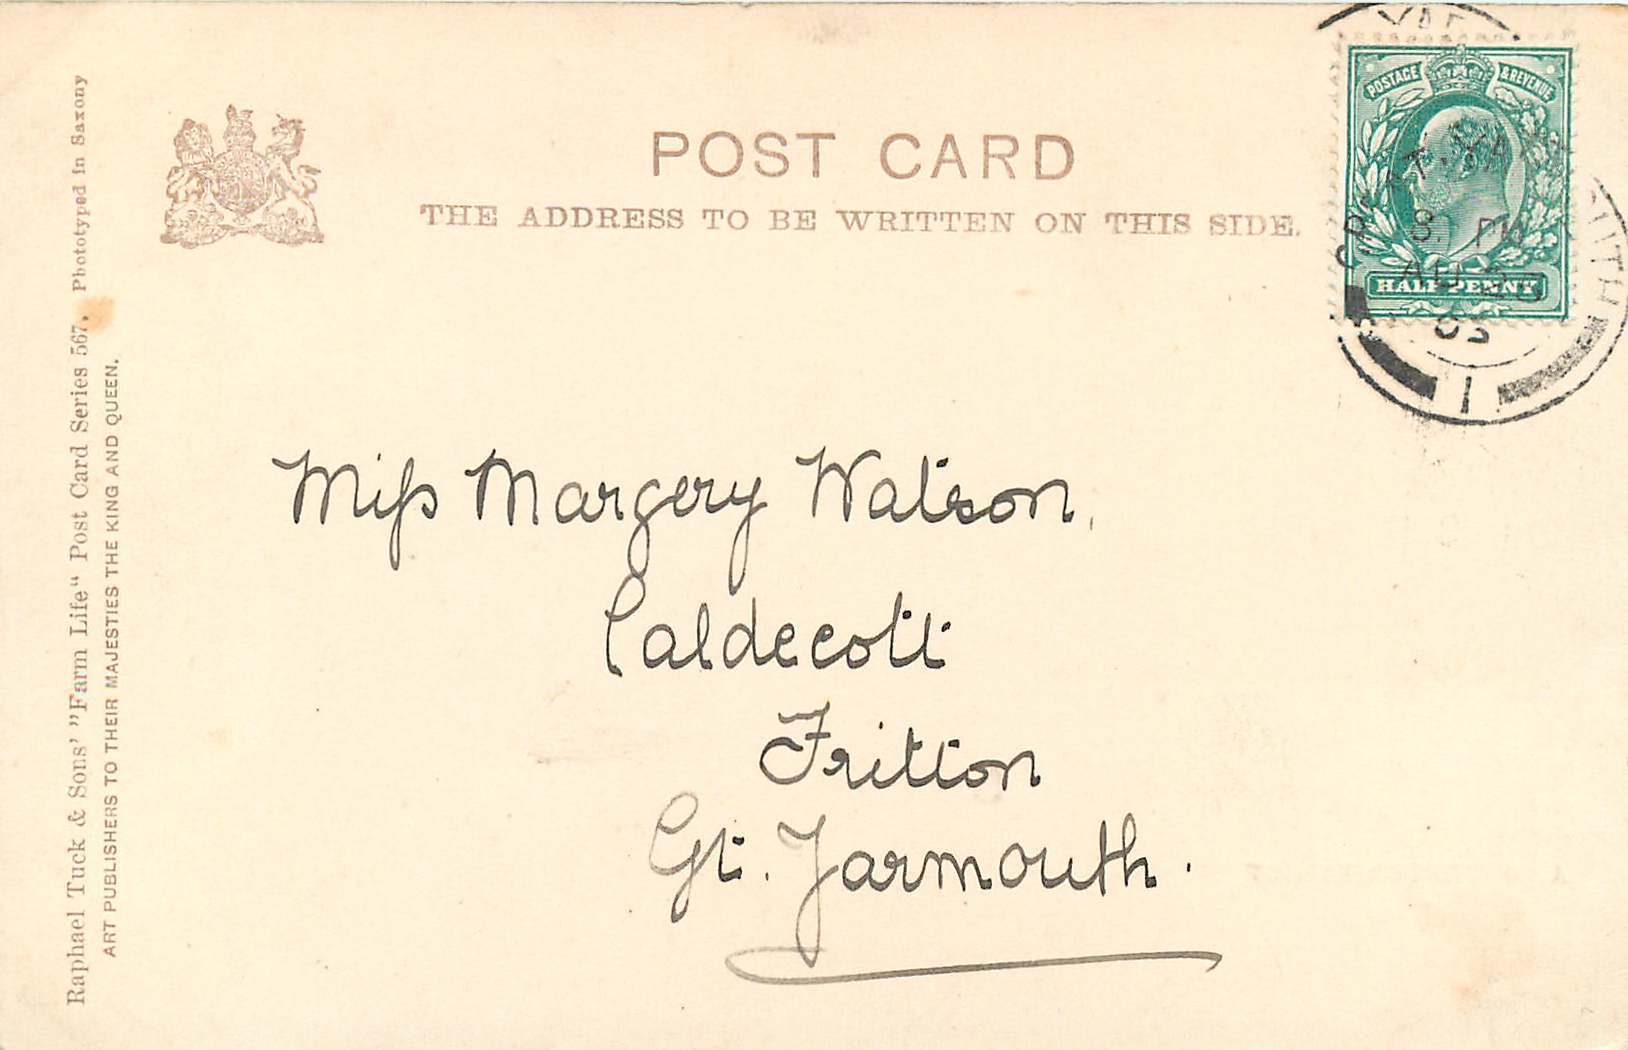 POST CARD
THE ADDRESS TO BE WRITTEN ON THIS SIDE.
POSTAGE & REVENUE
HALF PENNY
8. PM
AU 20
03
1
Miss Margery Watson,
Caldecott
Fritton
Gt. Yarmouth.
Raphael Tuck & Sons' "Farm Life" Post Card Series 567. Phototyped in Saxony
ART PUBLISHERS TO THEIR MAJESTIES THE KING AND QUEEN.